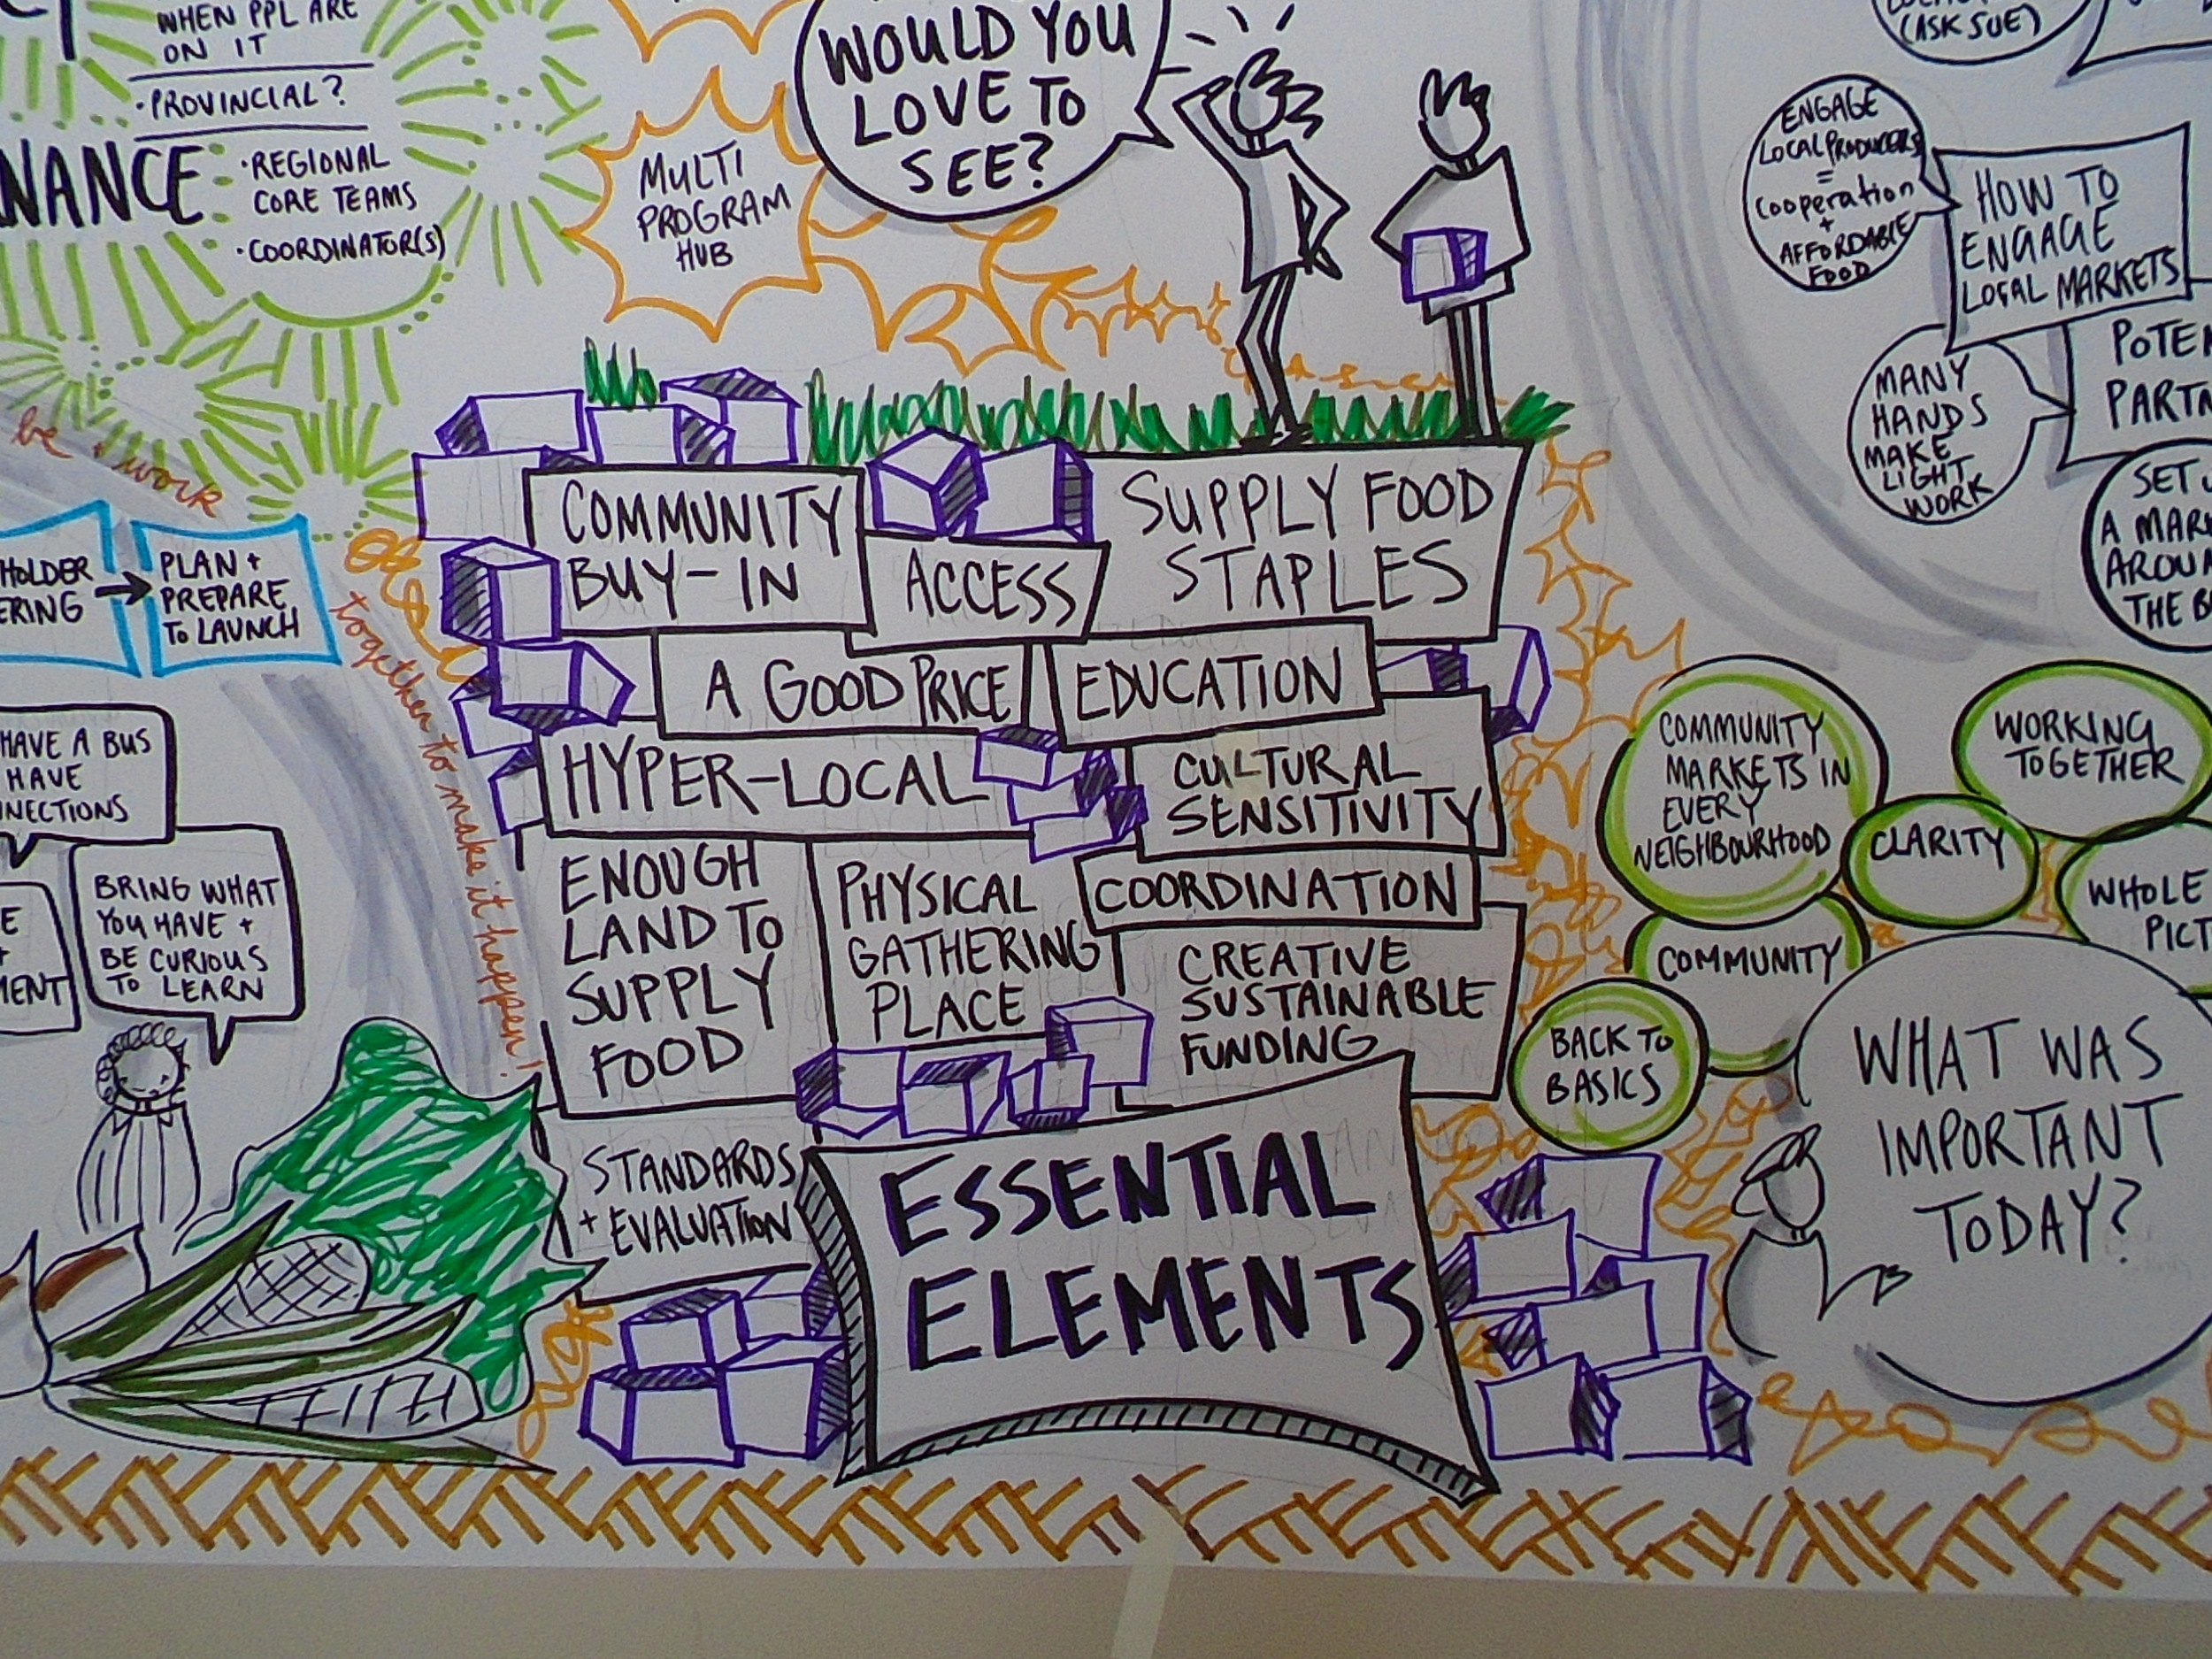 WHEN PPL ARE
ON IT
• PROVINCIAL?
NANCE
• REGIONAL
CORE TEAMS
• COORDINATOR(S)
MULTI
PROGRAM
HUB
WOULD YOU
LOVE TO
SEE?
(ASK SUE)
ENGAGE
LOCAL PRODUCERS
=
COOPERATION
+
AFFORDABLE
FOOD
HOW TO
ENGAGE
LOCAL MARKETS
MANY
HANDS
MAKE
LIGHT
WORK
POTE
PARTN
SET
A MAR
AROUN
THE B
be + work
together to make it happen!
HOLDER
ERING
PLAN +
PREPARE
TO LAUNCH
HAVE A BUS
HAVE
NNECTIONS
E
+
MENT
BRING WHAT
YOU HAVE +
BE CURIOUS
TO LEARN
COMMUNITY
BUY-IN
ACCESS
SUPPLY FOOD
STAPLES
A GOOD PRICE
EDUCATION
HYPER-LOCAL
CULTURAL
SENSITIVITY
ENOUGH
LAND TO
SUPPLY
FOOD
PHYSICAL
GATHERING
PLACE
COORDINATION
CREATIVE
SUSTAINABLE
FUNDING
STANDARDS
+ EVALUATION
ESSENTIAL
ELEMENTS
COMMUNITY
MARKETS IN
EVERY
NEIGHBOURHOOD
WORKING
TOGETHER
CLARITY
WHOLE
PICT
COMMUNITY
BACK TO
BASICS
WHAT WAS
IMPORTANT
TODAY?